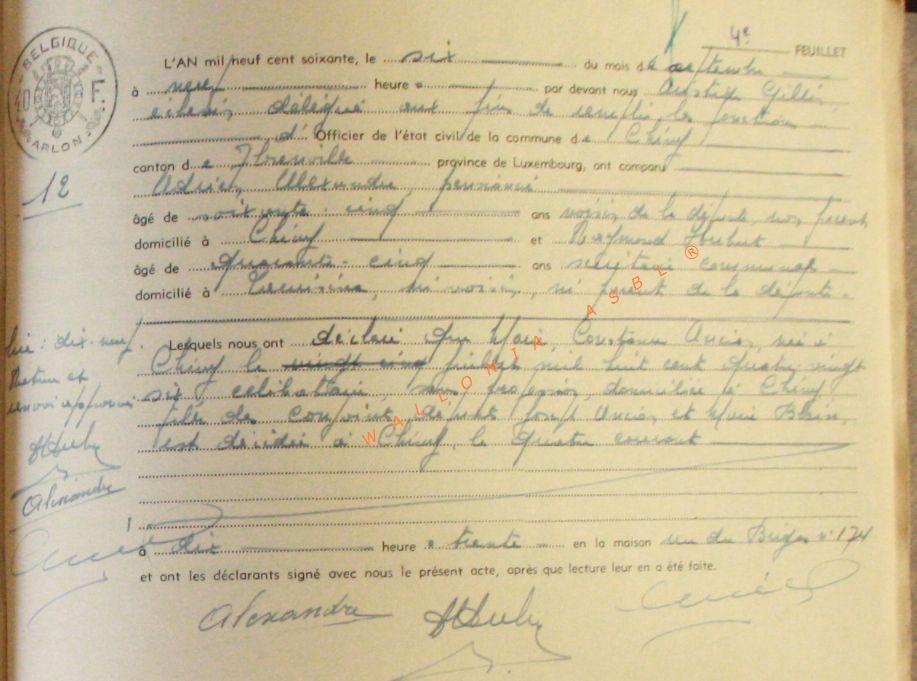 4e FEUILLET
BELGIQUE
ARLON
L'AN mil neuf cent soixante, le six du mois de septembre
à neuf heures par devant nous Gillin,
échevin délégué aux fins de remplir les fonctions
d' Officier de l'état civil de la commune de Chiny
canton de Florenville province de Luxembourg, ont comparu
12
Alexandre, pensionné
âgé de soixante-cinq ans voisin de la défunte, non parent
domicilié à Chiny et Raymond Hubert
âgé de quarante-cinq ans secrétaire communal
domicilié à ni voisin, ni parent de la défunte.
Lesquels nous ont déclaré que Marie, Constance née à
Chiny le vingt cinq juillet mil huit cent quatre vingt
six, célibataire, sans profession, domiciliée à Chiny
fille des conjoints défunts Joseph et Marie
est décédée à Chiny, le quatre courant
lire : dix-neuf.
Rature et
renvoi approuvés
Alexandre
à dix heures trente en la maison rue du n° 174
et ont les déclarants signé avec nous le présent acte, après que lecture leur en a été faite.
Alexandre
WALLONIA ASBL ®